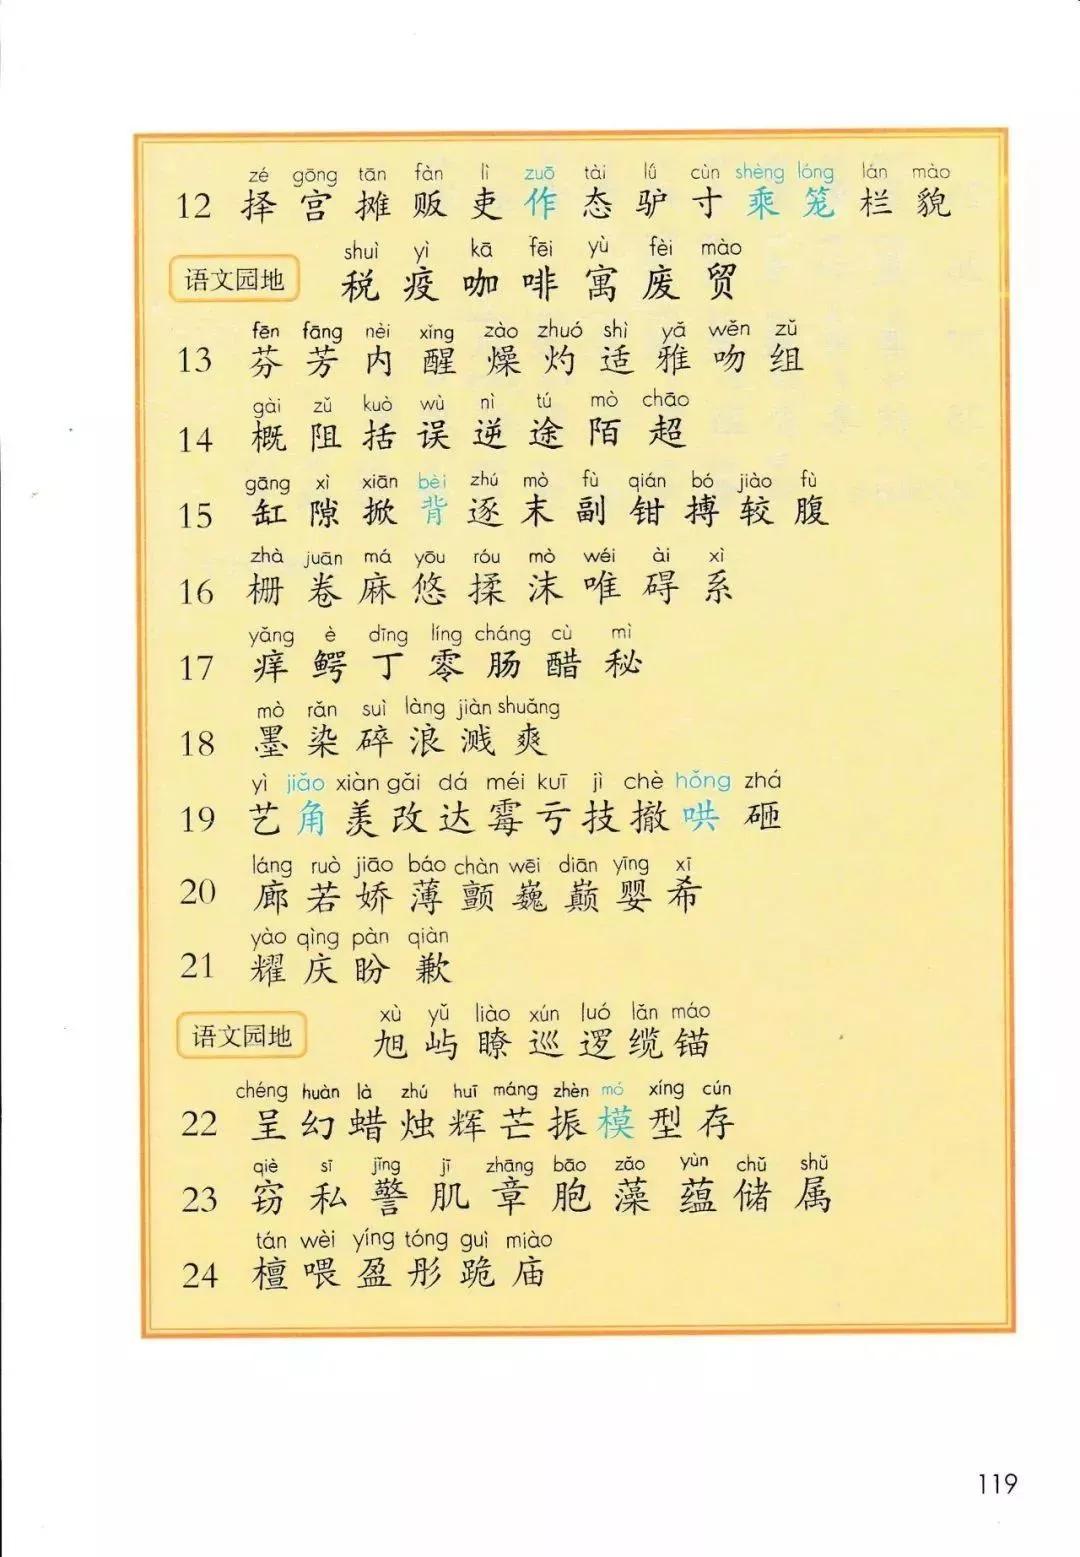 zé gōng tān fàn lì zuō tài lǘ cùn shèng lóng lán mào
12 择 宫 摊 贩 吏 作 态 驴 寸 乘 笼 栏 貌
shuì yì kā fēi yù fèi mào
语文园地 税 疫 咖 啡 寓 废 贸
fēn fāng nèi xǐng zào zhuó shì yǎ wěn zǔ
13 芬 芳 内 醒 燥 灼 适 雅 吻 组
gài zǔ kuò wù nì tú mò chāo
14 概 阻 括 误 逆 途 陌 超
gāng xì xiān bèi zhú mò fù qián bó jiào fù
15 缸 隙 掀 背 逐 末 副 钳 搏 较 腹
zhà juān má yōu róu mò wéi ài xì
16 栅 卷 麻 悠 揉 沫 唯 碍 系
yǎng è dīng líng cháng cù mì
17 痒 鳄 丁 零 肠 醋 秘
mò rǎn suì làng jiàn shuǎng
18 墨 染 碎 浪 溅 爽
yì jiǎo xiàn gǎi dá méi kuī jì chè hǒng zhá
19 艺 角 羡 改 达 霉 亏 技 撤 哄 砸
láng ruò jiāo báo chàn wēi diān yīng xī
20 廊 若 娇 薄 颤 巍 巅 婴 希
yào qìng pàn qiàn
21 耀 庆 盼 歉
xù yǔ liào xún luó lǎn máo
语文园地 旭 屿 瞭 巡 逻 缆 锚
chéng huàn là zhú huī máng zhèn mó xíng cún
22 呈 幻 蜡 烛 辉 芒 振 模 型 存
qiè sī jǐng jī zhāng bāo zǎo yùn chǔ shǔ
23 窃 私 警 肌 章 胞 藻 蕴 储 属
tán wèi yíng tóng guì miào
24 檀 喂 盈 彤 跪 庙
119